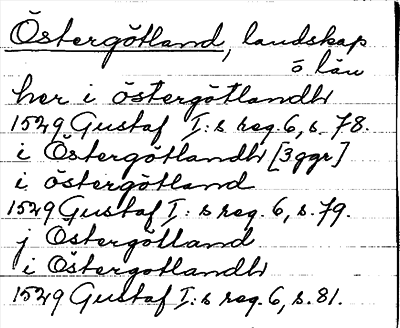 Östergötland, landskap
o län
her i östergötlandh
1529 Gustaf I:s reg. 6, s. 78.
i Östergötlandh [3 ggr]
i östergötland
1529 Gustaf I:s reg. 6, s. 79.
j Östergötland
i Östergotlandh
1529 Gustaf I:s reg. 6, s. 81.